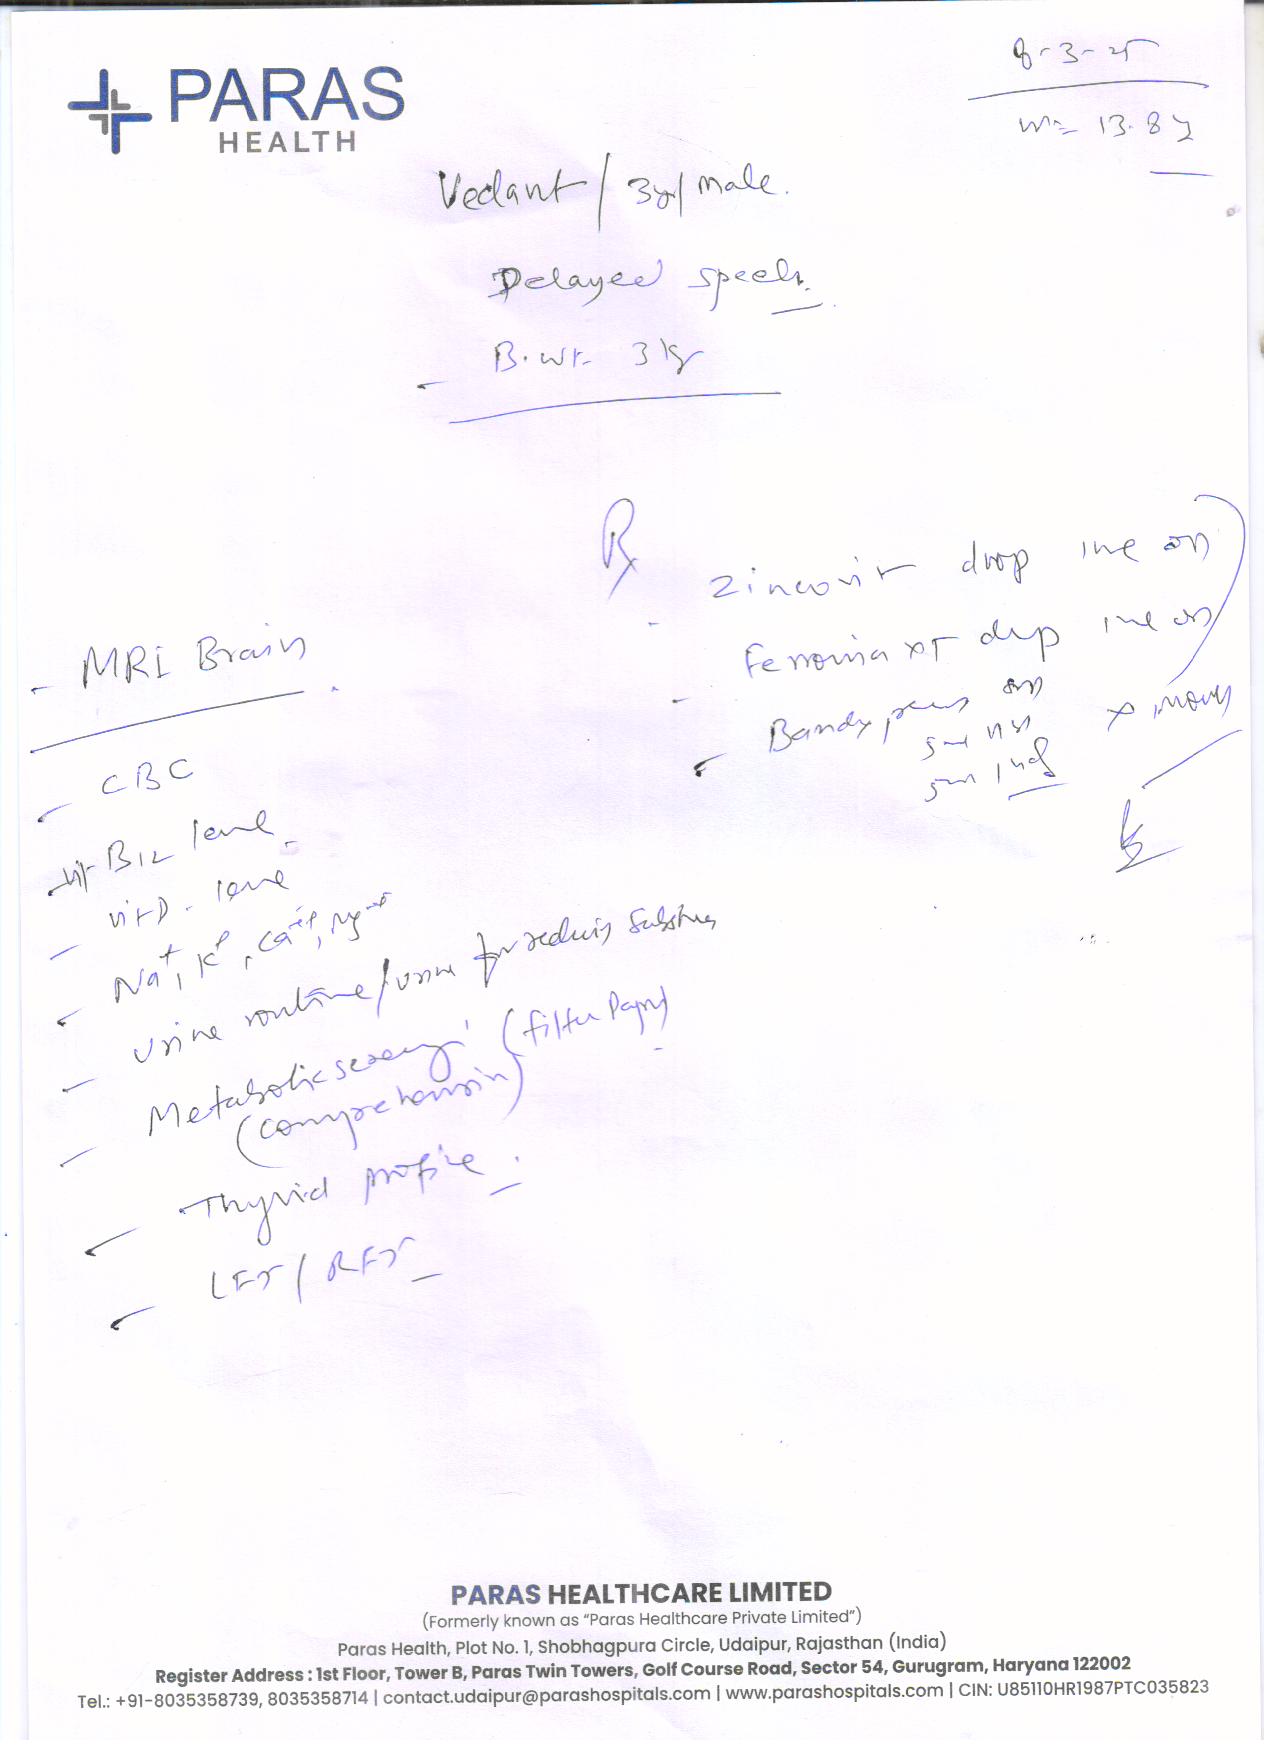 PARAS
HEALTH
8-3-25
Wt = 13.8
Vedant / 3y / Male.
Delayed speech
B.wt - 3 kg
Rx
Zincovit drop 1ml OD
Feronia XT drop 1ml OD
Bandy
5ml
5ml
MRI Brain
CBC
Vit B12 level
Vit D - level
Na+, K+, Ca++, Mg++
Urine routine / urine for reducing substances
Metabolic screening (filter paper)
(comprehensive)
Thyroid profile
LFT / RFT
PARAS HEALTHCARE LIMITED
(Formerly known as “Paras Healthcare Private Limited”)
Paras Health, Plot No. 1, Shobhagpura Circle, Udaipur, Rajasthan (India)
Register Address : 1st Floor, Tower B, Paras Twin Towers, Golf Course Road, Sector 54, Gurugram, Haryana 122002
Tel.: +91-8035358739, 8035358714 | contact.udaipur@parashospitals.com | www.parashospitals.com | CIN: U85110HR1987PTC035823